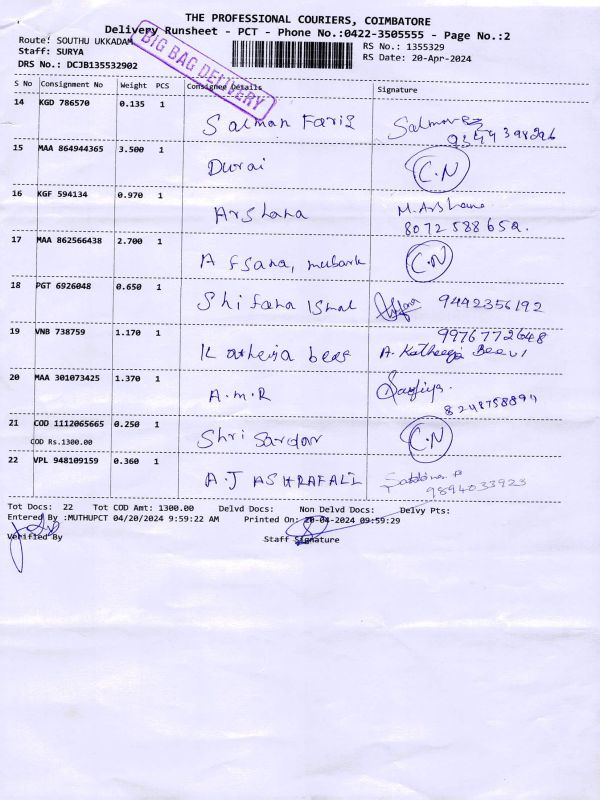 THE PROFESSIONAL COURIERS, COIMBATORE
Delivery Runsheet - PCT - Phone No.:0422-3505555 - Page No.:2
Route: SOUTHU UKKADAM
RS No.: 1355329
Staff: SURYA
RS Date: 20-Apr-2024
DRS No.: DCJB135532902
BIG BAG DELIVERY
S No Consignment No Weight PCS Consignee Details Signature
14 KGD 786570 0.135 1 Salman Faris
15 MAA 864944365 3.500 1 Durai C.N
16 KGF 594134 0.970 1 Arshana M. Arshana
8072588652.
17 MAA 862566438 2.700 1 Afsana, mubark C.N
18 PGT 6926048 0.650 1 Shifana 9442356192
19 VNB 738759 1.170 1 9976772648
A. Katheeja Beevi
20 MAA 301073425 1.370 1 A.M.R
21 COD 1112065665 0.250 1 Shri Sardar C.N
COD Rs.1300.00
22 VPL 948109159 0.360 1 A.J ASHRAFALI
9894033923
Tot Docs: 22 Tot COD Amt: 1300.00 Delvd Docs: Non Delvd Docs: Delvy Pts:
Entered By :MUTHUPCT 04/20/2024 9:59:22 AM Printed On: 20-04-2024 09:59:29
Verified By Staff Signature